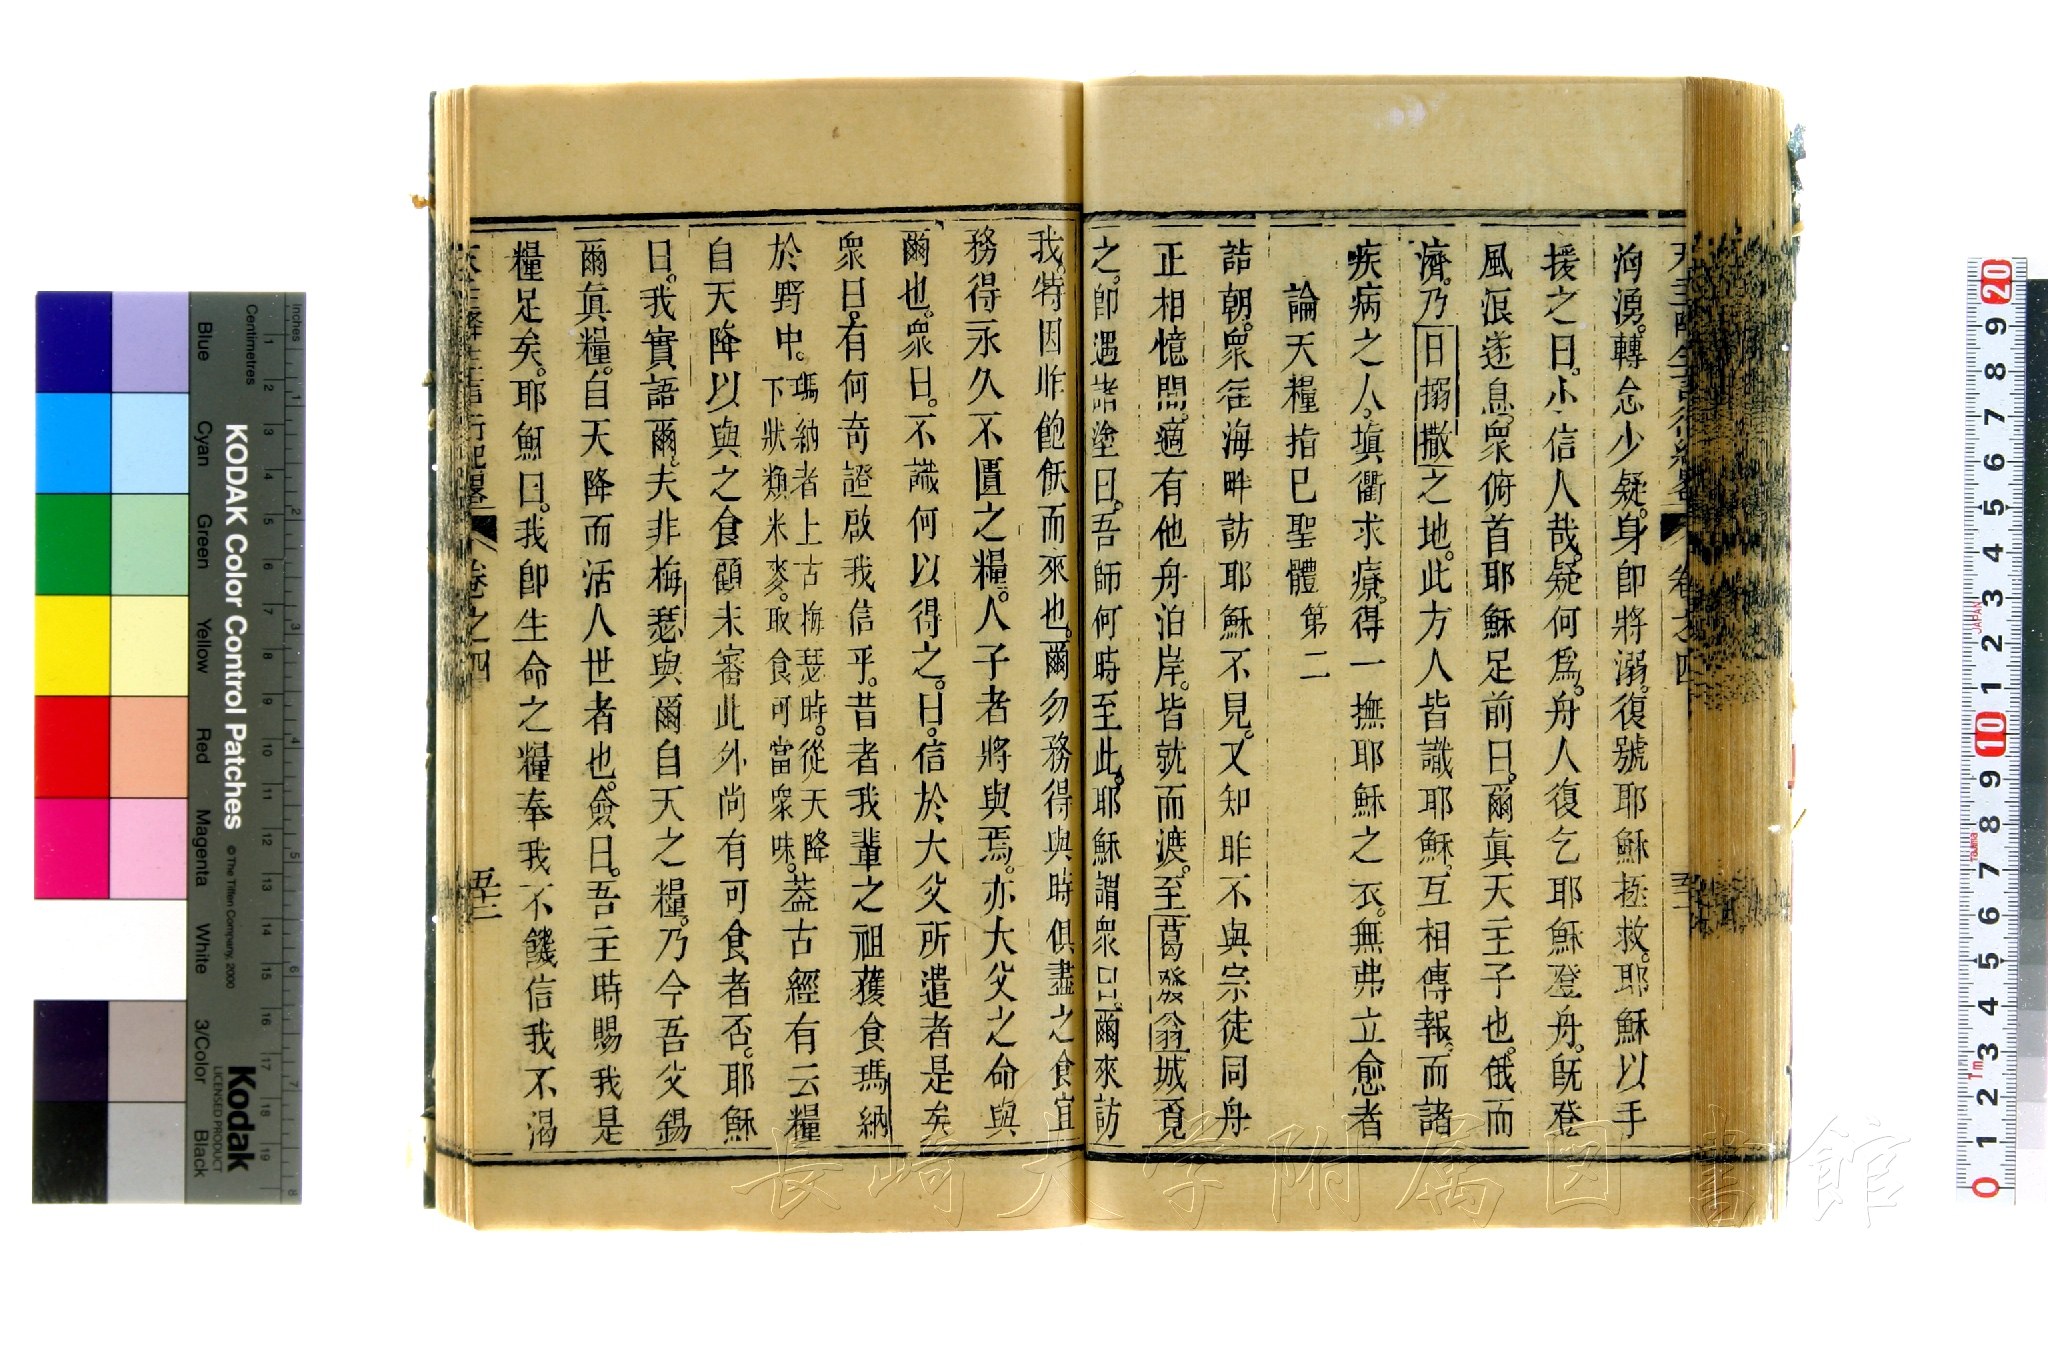 洶湧。轉念少疑。身即將溺。復號耶穌拯救。耶穌以手
援之曰。小信人哉。疑何爲。舟人復乞耶穌登舟。旣登
風浪遂息。衆俯首耶穌足前曰。爾眞天主子也。俄而
濟。乃日搦撒之地。此方人皆識耶穌。互相傳報。而諸
疾病之人。塡衢求療。得一撫耶穌之衣。無弗立愈者
論天糧指已聖體 第二
詰朝。衆徃海畔訪耶穌不見。又知昨不與宗徒同舟
正相憶間。適有他舟泊岸。皆就而渡。至葛發翁城覓
之。卽遇諸塗曰。吾師何時至此。耶穌謂衆曰。爾來訪
我。特因昨飽飫而來也。爾勿務得與時俱盡之食宜
務得永久不匱之糧。人子者將與焉。亦大父之命與
爾也。衆曰。不識何以得之。曰。信於大父所遣者是矣
衆曰。有何奇證啟我信乎。昔者我輩之祖獲食瑪納
於野中。瑪納者上古梅瑟時。從天降下狀類米麥。取食可當衆味。葢古經有云糧
自天降以與之食顧未審此外尚有可食者否。耶穌
曰。我實語爾。夫非梅瑟與爾自天之糧。乃今吾父錫
爾眞糧。自天降而活人世者也。僉曰。吾主時賜我是
糧足矣。耶穌曰。我卽生命之糧奉我不饑信我不渴
天主降生言行紀畧 卷之四 五十二
Blue Cyan Green Yellow Red Magenta White 3/Color Black
KODAK Color Control Patches
© The Tiffen Company, 2000
Kodak
LICENSED PRODUCT
Centimetres
inches
長崎大学附属図書館